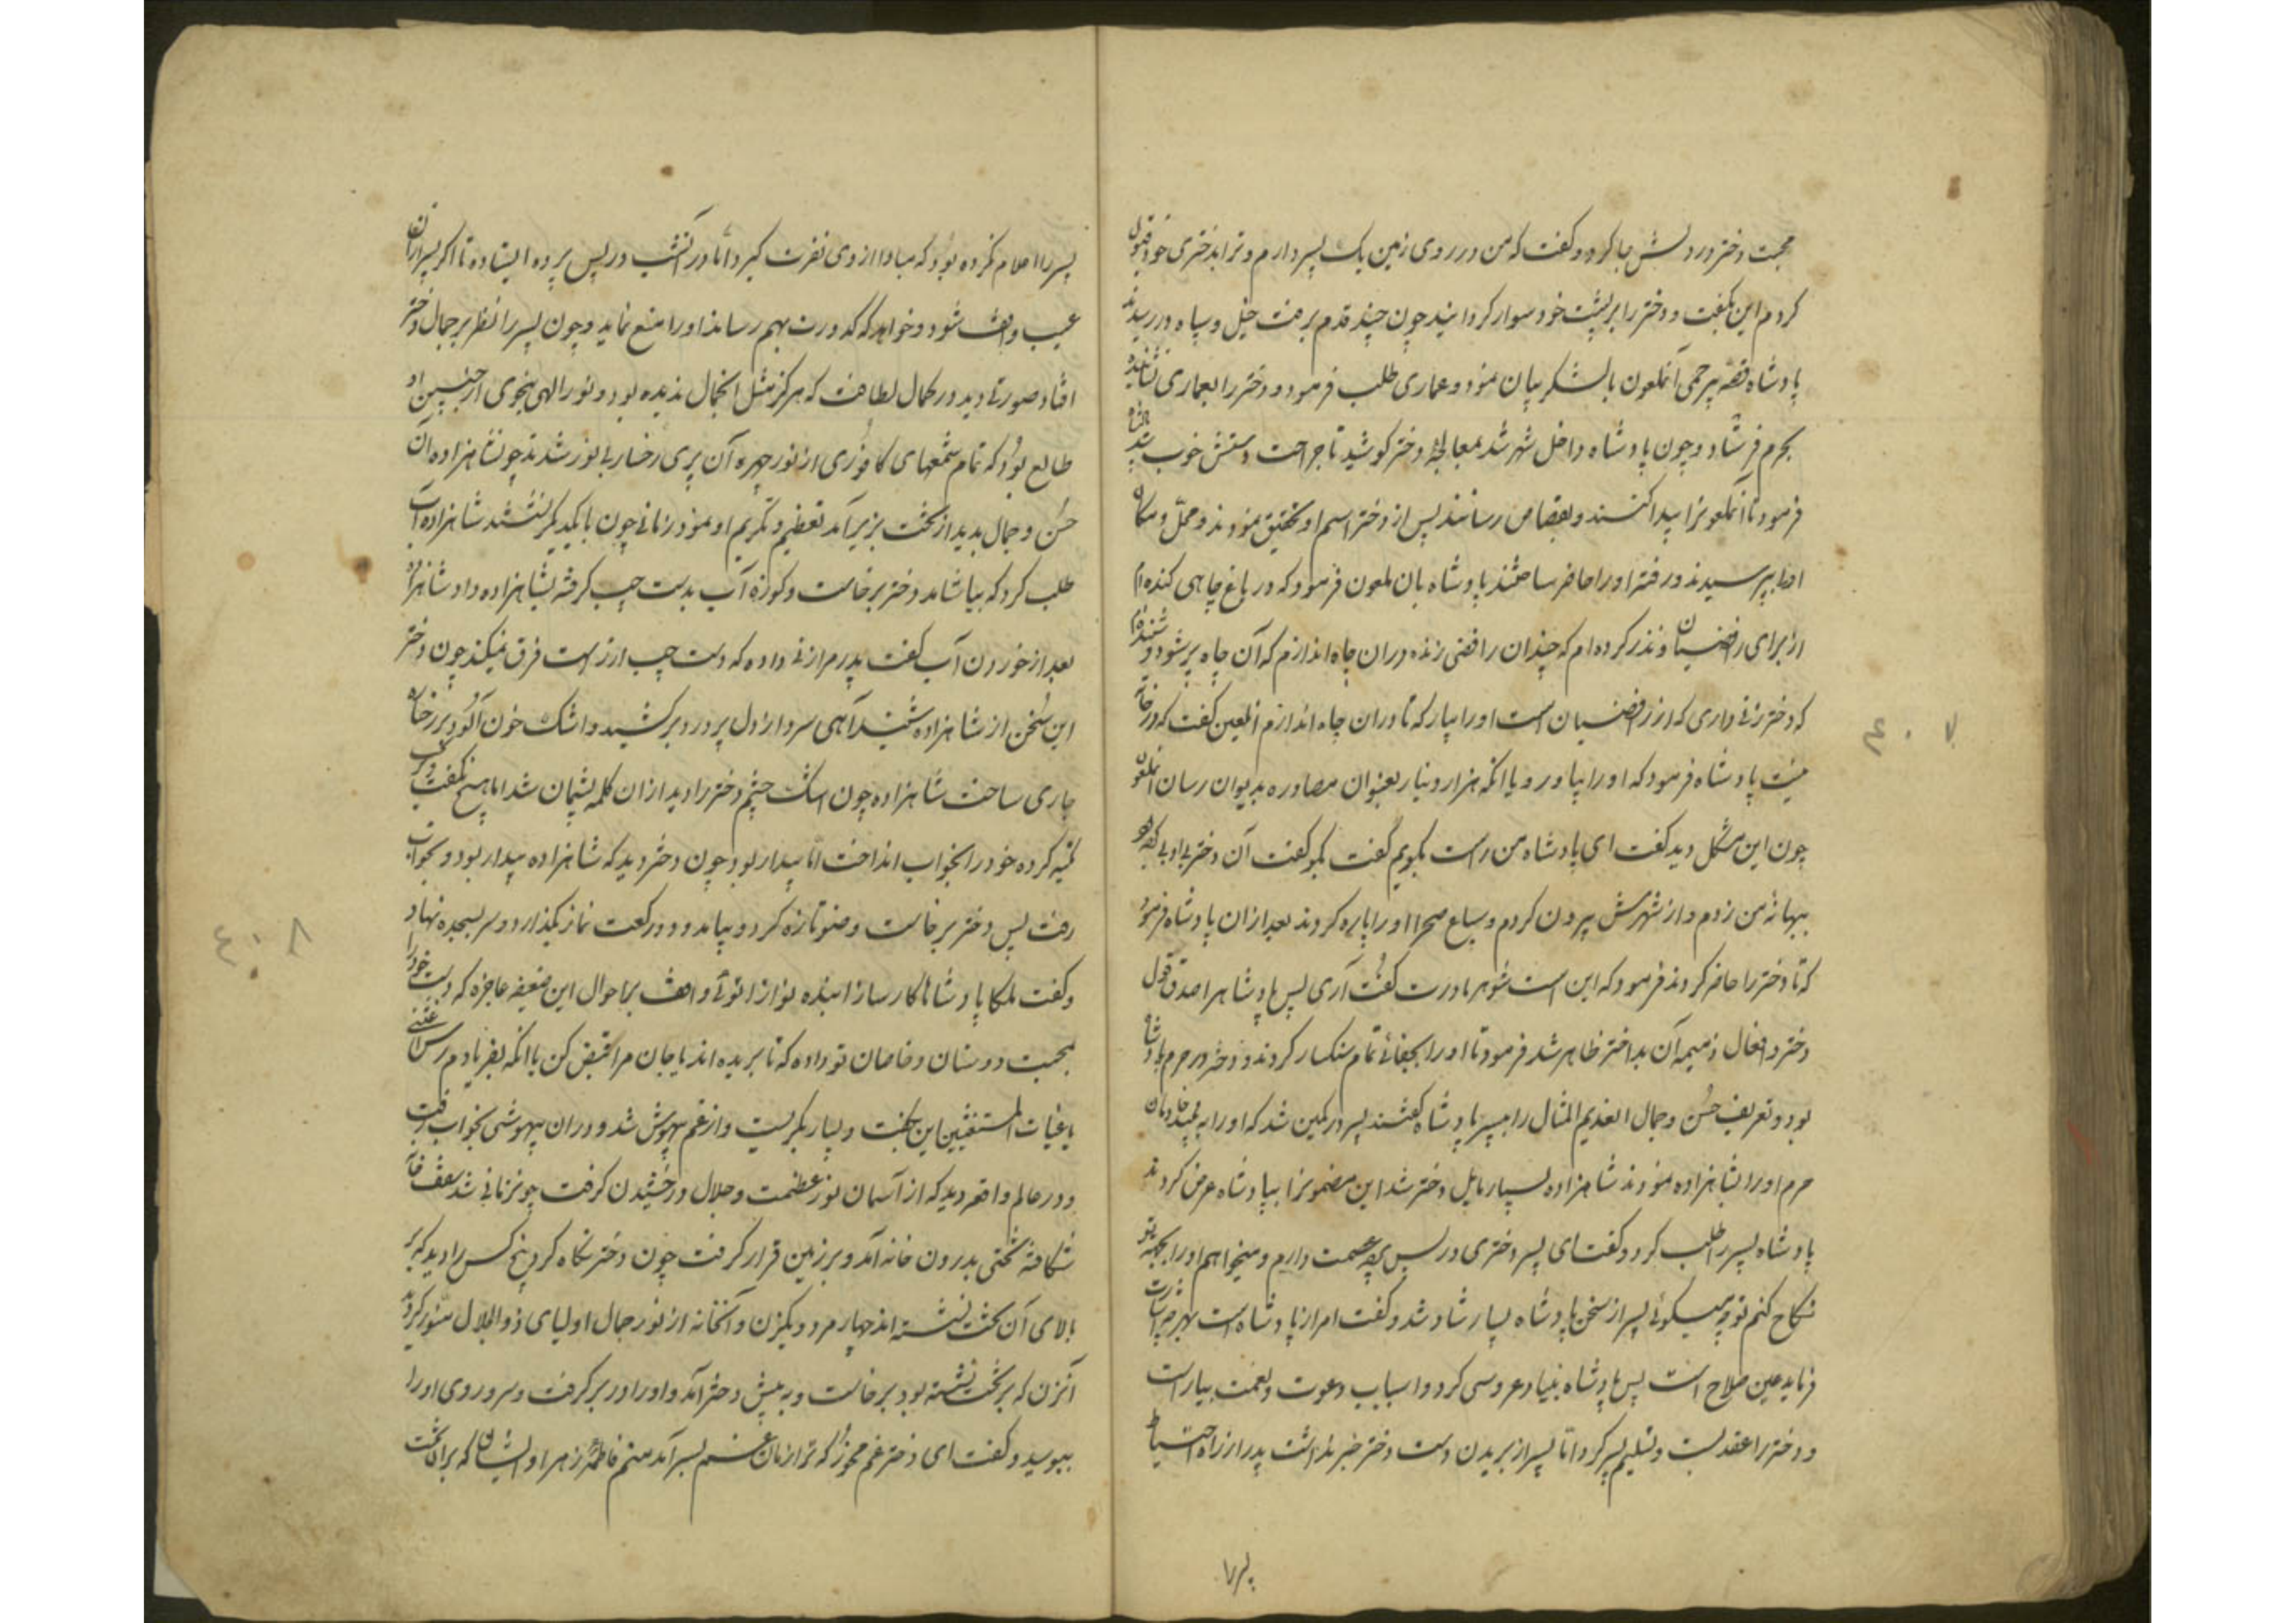 محبت دختر در دلش جا کرد و گفت که من در روی زمین یک پسر دارم و ترا بدختری خود قبول
کردم این بگفت و دختر را بر پشت خود سوار گردانید چون چند قدم برفت خیل و سپاه در رسیدند
پادشاه قصه بیرحمی آنملعون با لشکر بیان نمود و عماری طلب فرمود و دختر را بعماری نشانیده
بحرم فرستاد و چون پادشاه داخل شهر شد بمعالجهٔ دختر کوشید تا جراحت دستش خوب شد
فرمود تا آنملعونرا پیدا کنند و بقصاص رسانند پس از دختر اسم او تحقیق نمودند و محلّ و مکان
اورا بپرسیدند و رفته اورا حاضر ساختند پادشاه بان ملعون فرمود که در باغ چاهی کنده ام
از برای رافضیان و نذر کرده ام که چندان رافضی زنده دران چاه اندازم که آن چاه پر شود و شنیده ام
که دختر زنی داری که از رافضیان است اورا بیار که تا دران چاه اندازم آنلعین گفت که در خانه
نیست پادشاه فرمود که اورا بیاور و یا انکه هزار دینار بعنوان مصادره بدیوان رسان آنملعون
چون این مشکل دید گفت ای پادشاه من راست بگویم گفت بگو گفت آن دختر بی ادبی کرده بود
ببهانه من زدم و از شهرش بیرون کردم و سباع صحرا اورا پاره کردند بعد ازان پادشاه فرمود
که تا دختر را حاضر کردند فرمود که این است شوهر مادرت گفت آری پس پادشاهرا صدق قول
دختر و افعال ذمیمه آن بداختر ظاهر شد فرمود تا اورا بجفای تمام سنکسار کردند و دختر در حرم پادشاه
بود و تعریف حُسن و جمال العدیم المثال را به پسر پادشاه گفتند پسر در کمین شد که اورا به بیند خادمان
حرم اورا بشاهزاده نمودند شاهزاده بسیار مایل دختر شد این مضمونرا بپادشاه عرض کردند
پادشاه پسر را طلب کرد و گفت ای پسر دختری در پس پرده عصمت دارم و میخواهم اورا بجهة تو
نکاح کنم تو چه میگوئی پسر از سخن پادشاه بسیار شاد شد و گفت امر از پادشاه است بهر چه اشارت
فرماید عین صلاح است پس پادشاه بنیاد عروسی کرد و اسباب دعوت و نعمت بیاراست
و دختر را عقد بست و تسلیم پسر کرد امّا پسر از بریدن دست دختر خبر نداشت پدر از راه احتیاط
پسر را
۴۰۷
پسر را اعلام نکرده بود که مبادا از وی نفرت گیرد امّا در آنشب در پس پرده ایستاده تا اگر پسر ازان
عیب واقف شود و خواهد که کدورت بهم رساند اورا منع نماید و چون پسر را نظر بر جمال دختر
افتاد صورتی دید در کمال لطافت که هرگز مثل انجمال ندیده بود و نور الهی بنحوی از جبین او
طالع بود که تمام شمعهای کافوری از نور چهره آن پری رخسار بی نور شدند چون شاهزاده آن
حُسن و جمال بدید از تخت بزیر آمد تعظیم و تکریم او نمود زمانی چون با یکدیگر نشستند شاهزاده آب
طلب کرد که بیاشامد دختر برخاست و کوزه آب بدست چپ گرفته بشاهزاده داد شاهزاده
بعد از خوردن آب گفت پدرم مرا زنی داده که دست چپ از راست فرق نمیکند چون دختر
این سُخن از شاهزاده شنید آهی سرد از دل پر درد برکشید و اشک خون آلود بر رخساره
جاری ساخت شاهزاده چون اشک چشم دختر را دید ازان کلمه پشیمان شد اما هیچ نگفت و بر
تکیه کرده خود را بخواب انداخت امّا بیدار بود چون دختر دید که شاهزاده بیدار بود و بخواب
رفت پس دختر برخاست وضو تازه کرد و بیامد و دو رکعت نماز بگذارد و سر بسجده نهاد
و گفت ملکا پادشاها کارسازا بنده نوازا توئی واقف بر احوال این ضعیفه عاجزه که دست خود را
بمحبت دوستان و خاصان تو داده که تا بریده اند یا جان مرا قبض کن یا انکه بفریادم رس اغثنی
یا غیاث المستغیثین این بگفت و بسیار بگریست و از غم بیهوش شد و دران بیهوشی بخواب رفت
و در عالم واقعه دید که از آسمان نور عظمت و جلال درخشیدن گرفت چون زمانی شد سقف خانه
شکافته تختی بدرون خانه آمد و بر زمین قرار گرفت چون دختر نگاه کرد پنج کس را دید که بر
بالای آن تخت نشسته اند چهار مرد و یکزن و آنخانه از نور جمال اولیای ذوالجلال منوّر گردید
آنزن که بر تخت نشسته بود برخاست و به پیش دختر آمد و اورا در بر گرفت و سر و روی اورا
ببوسید و گفت ای دختر غم مخور که ترا زمان غم بسر آمد منم فاطمهٔ زهرا و ایشان که بران تخت
۴۰۸